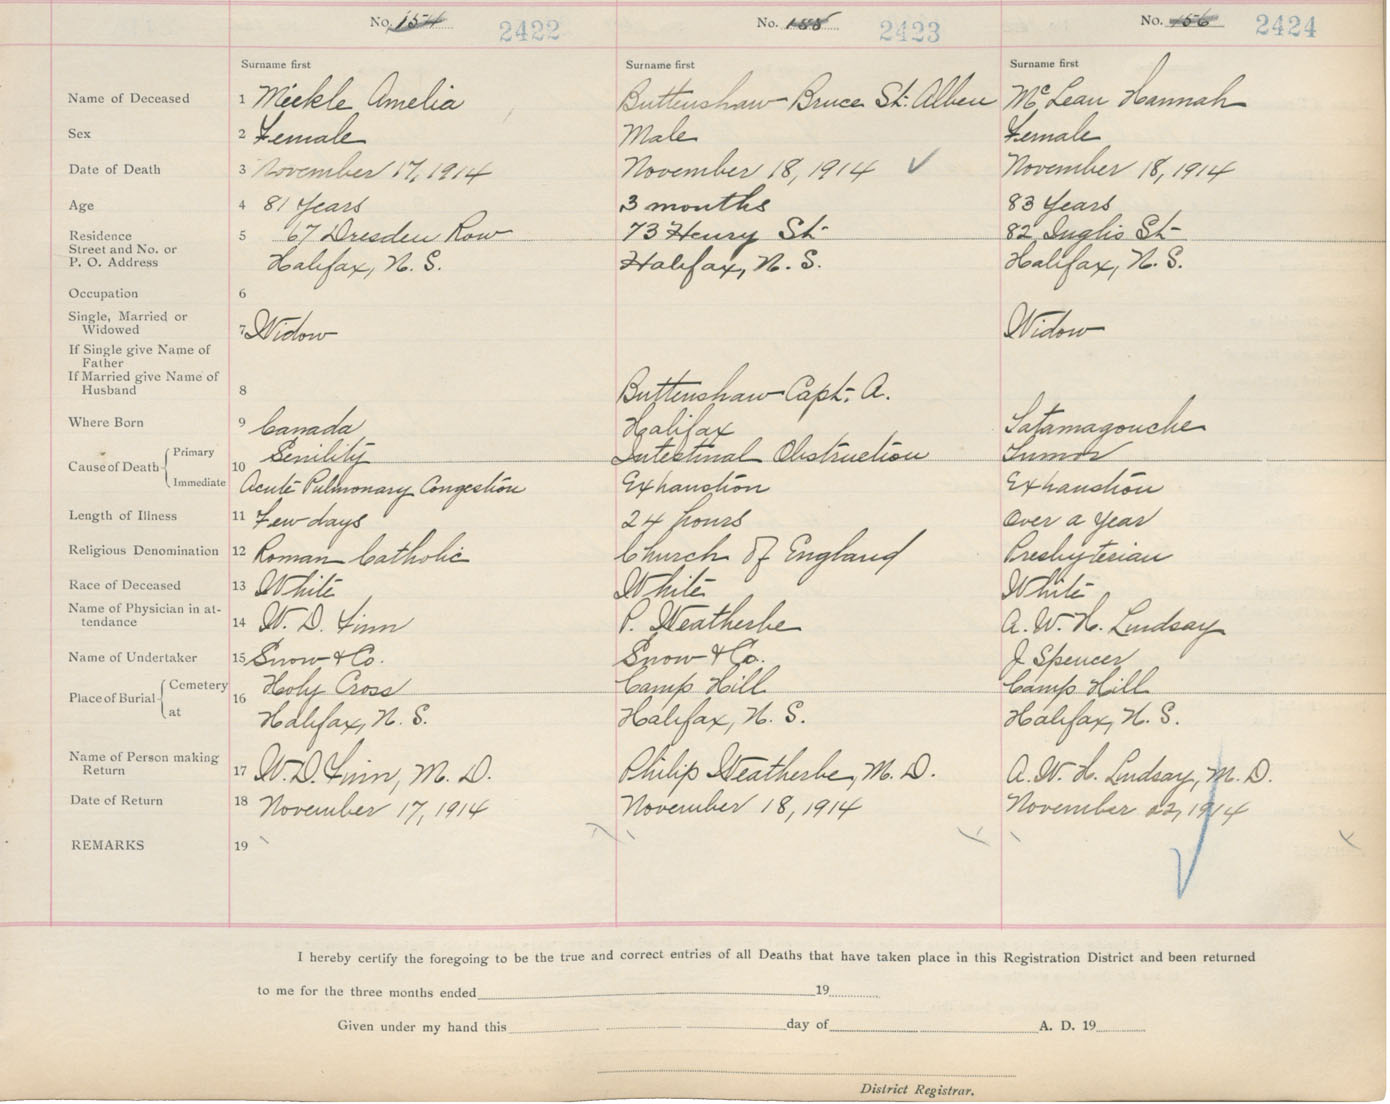 No. 154 2422 No. 155 2423 No. 156 2424
Surname first Surname first Surname first
Name of Deceased 1 Meekle Amelia Buttenshaw Bruce St. Alben McLean Hannah
Sex 2 Female Male Female
Date of Death 3 November 17, 1914 November 18, 1914 ✓ November 18, 1914
Age 4 81 Years 3 months 83 Years
Residence 5 67 Dresden Row 73 Henry St 82 Inglis St
Street and No. or
P. O. Address Halifax, N. S. Halifax, N. S. Halifax, N. S.
Occupation 6
Single, Married or
Widowed 7 Widow Widow
If Single give Name of
Father
If Married give Name of
Husband 8 Buttenshaw Capt. A.
Where Born 9 Canada Halifax Tatamagouche
Cause of Death Primary 10 Senility Intestinal Obstruction Tumor
Immediate Acute Pulmonary Congestion Exhaustion Exhaustion
Length of Illness 11 Few days 24 hours Over a Year
Religious Denomination 12 Roman Catholic Church of England Presbyterian
Race of Deceased 13 White White White
Name of Physician in at-
tendance 14 W. D. Finn P. Weatherbe A. W. H. Lindsay
Name of Undertaker 15 Snow & Co. Snow & Co. J Spencer
Place of Burial Cemetery 16 Holy Cross Camp Hill Camp Hill
at Halifax, N. S. Halifax, N. S. Halifax, N. S.
Name of Person making
Return 17 W. D. Finn, M. D. Philip Weatherbe, M. D. A. W. H. Lindsay, M. D.
Date of Return 18 November 17, 1914 November 18, 1914 November 22, 1914
REMARKS 19
I hereby certify the foregoing to be the true and correct entries of all Deaths that have taken place in this Registration District and been returned
to me for the three months ended 19
Given under my hand this day of A. D. 19
District Registrar.